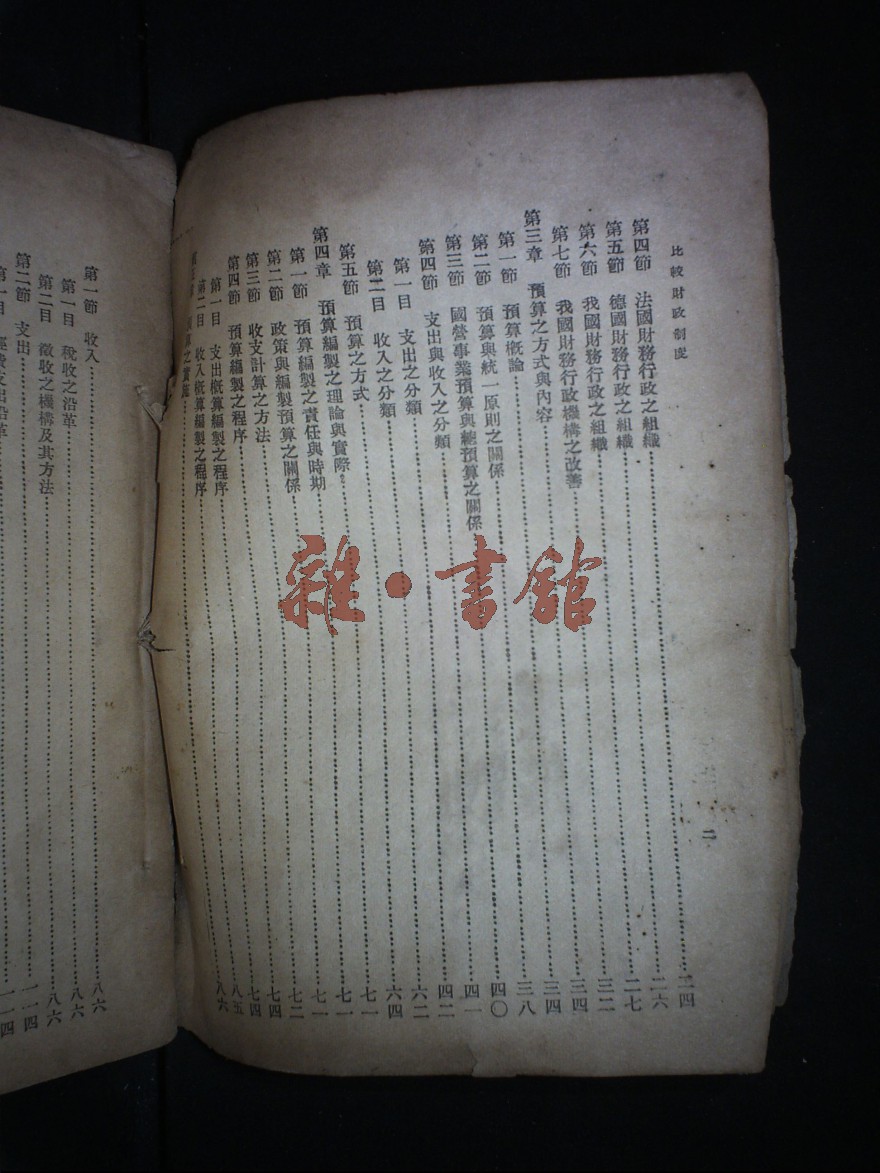 比較財政制度
二
第四節 法國財務行政之組織……二四
第五節 德國財務行政之組織……二六
第六節 我國財務行政之組織……二七
第七節 我國財務行政機構之改善……三二
第三章 預算之方式與內容……三四
第一節 預算概論……三四
第二節 預算與統一原則之關係……三八
第三節 國營事業預算與總預算之關係……四〇
第四節 支出與收入之分類……四一
第一目 支出之分類……四二
第二目 收入之分類……六二
第五節 預算之方式……六四
第四章 預算編製之理論與實際……七一
第一節 預算編製之責任與時期……七一
第二節 政策與編製預算之關係……七一
第三節 收支計算之方法……七二
第四節 預算編製之程序……七四
第一目 支出概算編製之程序……七四
第二目 收入概算編製之程序……八五
算之實施……八六
第一節 收入……八六
第一目 稅收之沿革……八六
第二目 徵收之機構及其方法……八六
第二節 支出……一二四
第一目 經費支出沿革……一二四
雜·書館